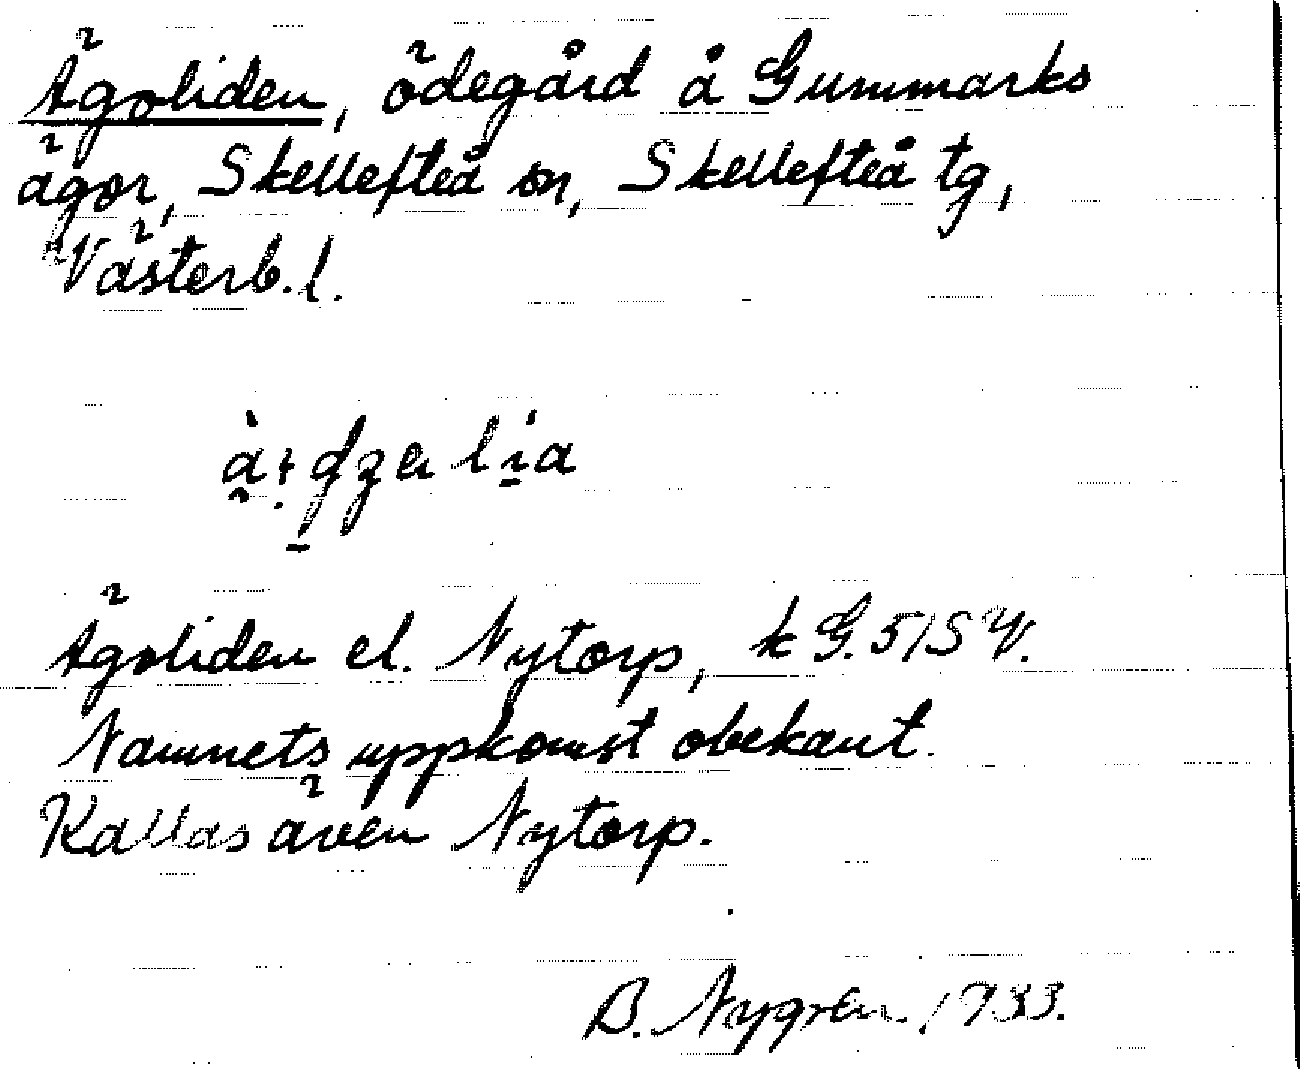 Ägoliden, ödegård å Gummarks
ägor, Skellefteå sn, Skellefteå tg,
Västerb. l.
Ägoliden el. Nytorp, k G. 5/SV.
Namnets uppkomst obekant.
Kallas även Nytorp.
B. Nygren 1933.